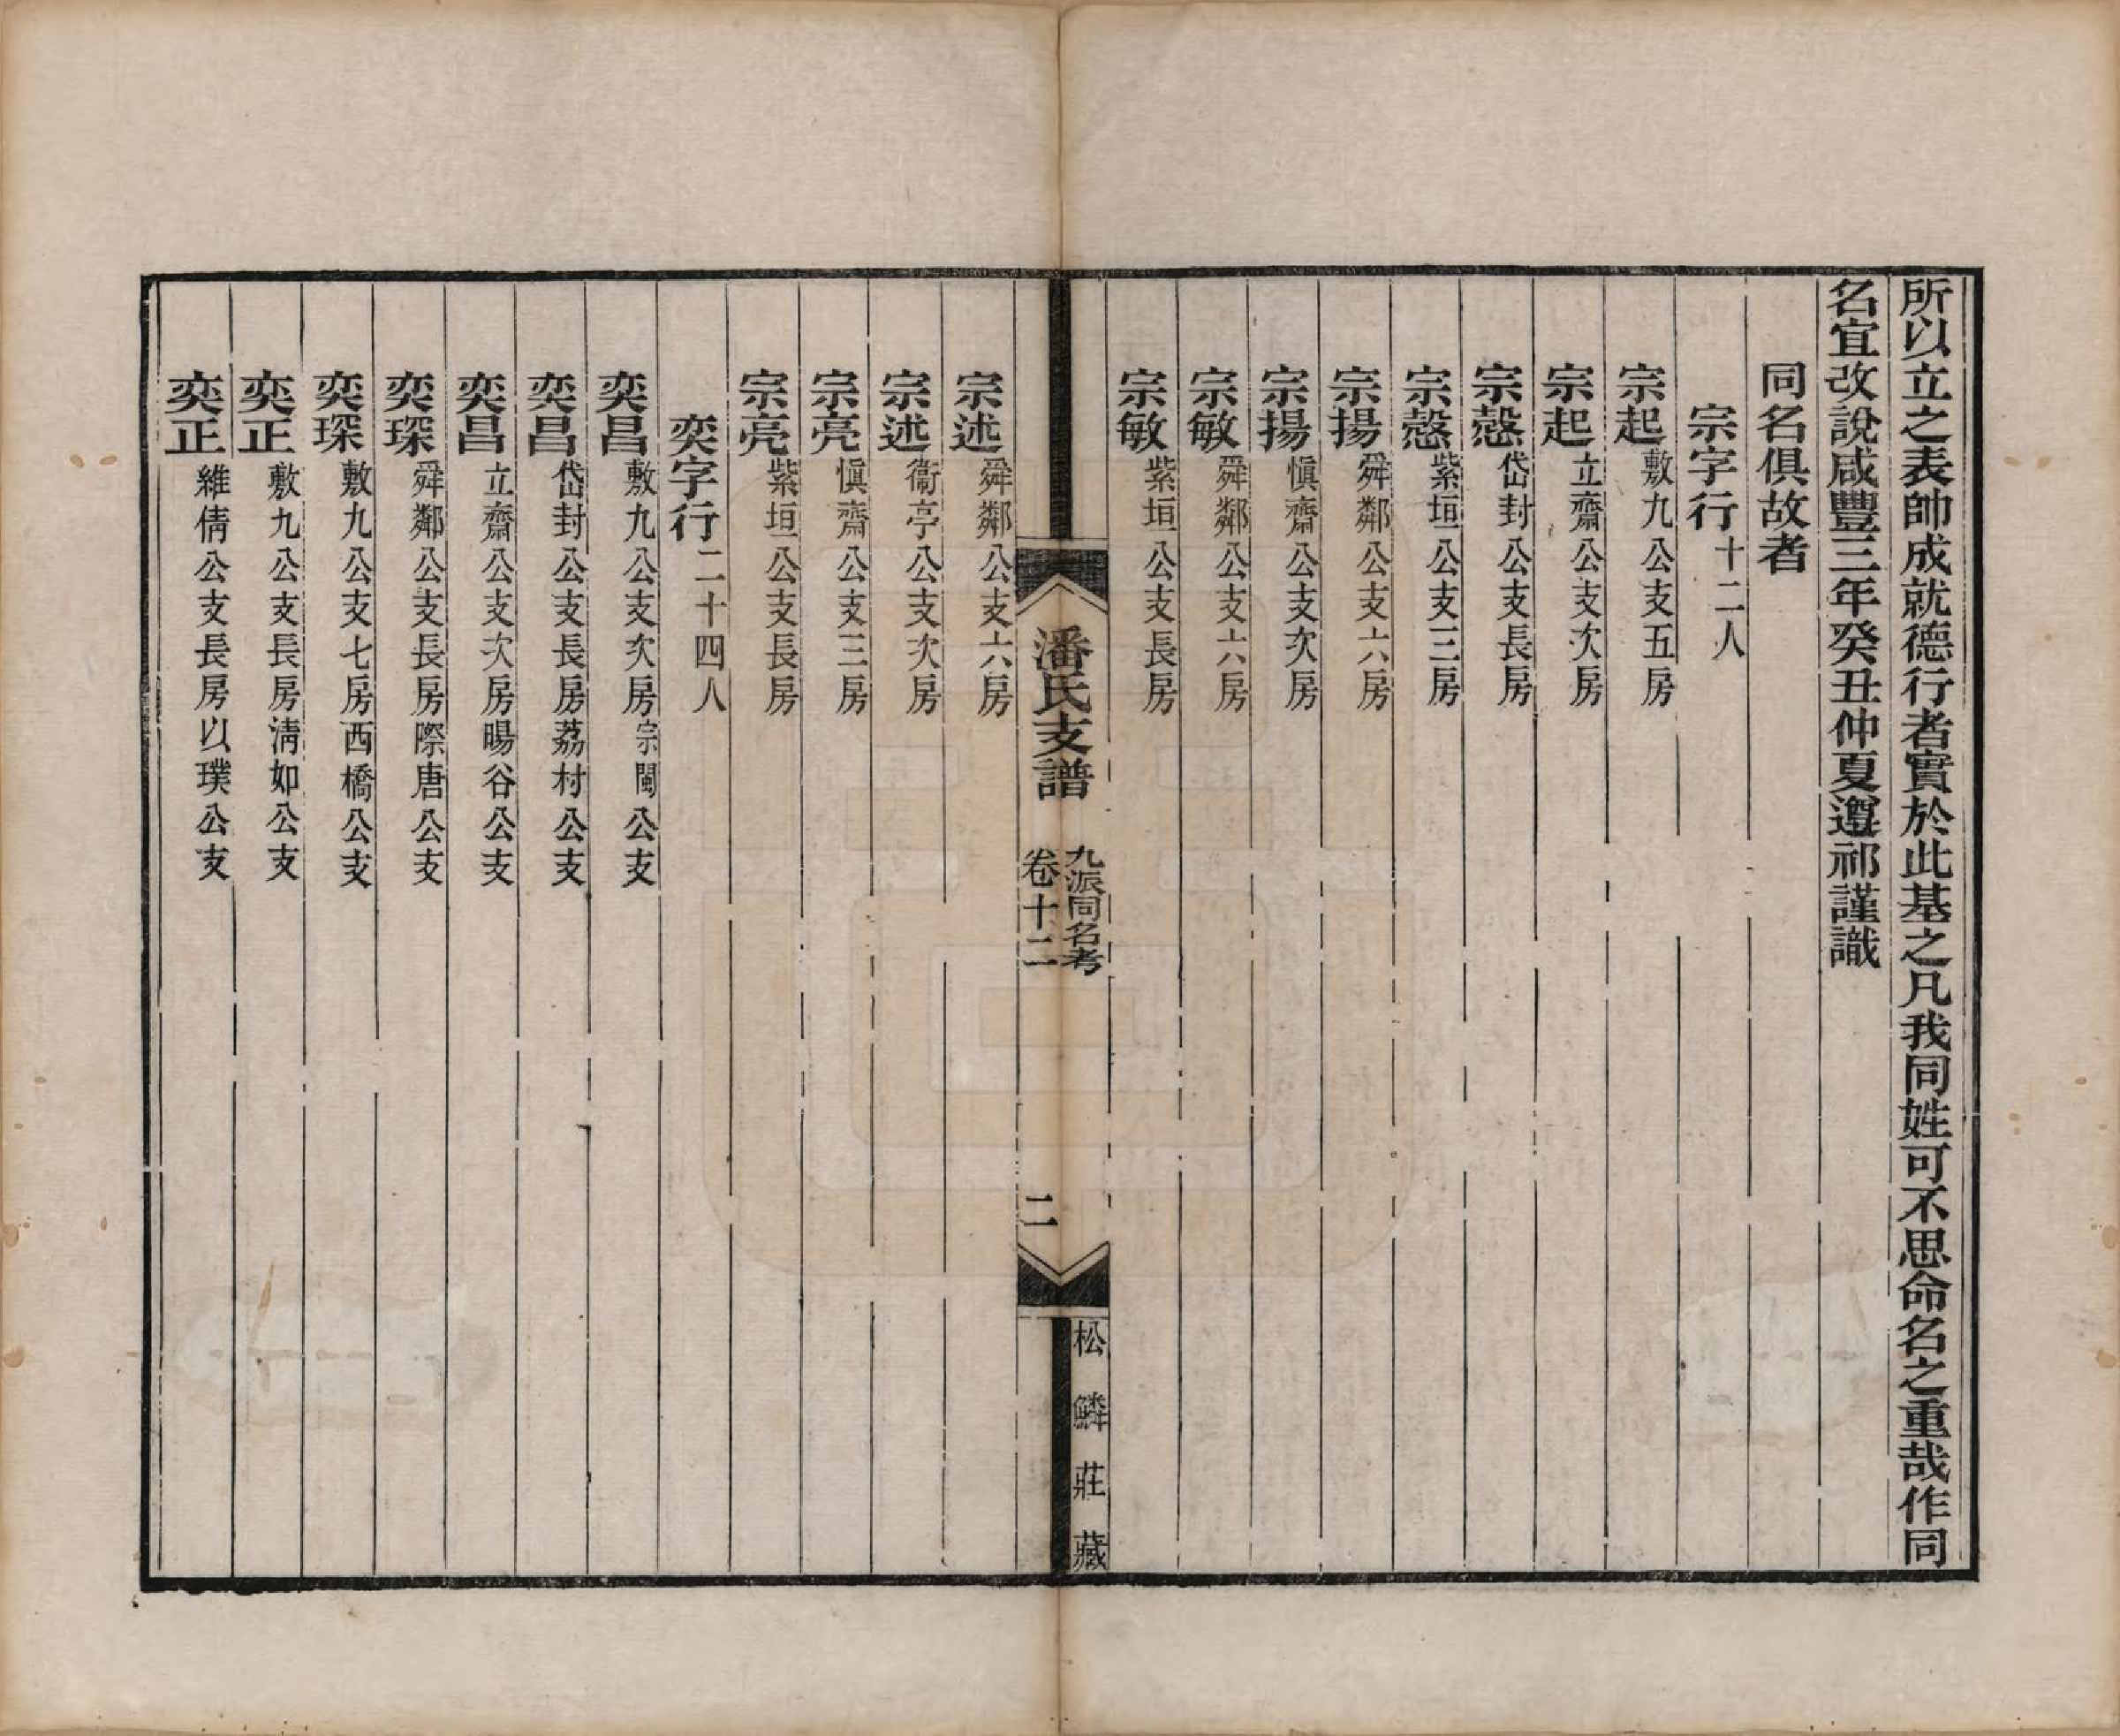 所以立之表帥成就德行者實於此基之凡我同姓可不思命名之重哉作同
名宜改說咸豐三年癸丑仲夏遵祁謹識
同名俱故者
宗字行十二人
宗起敷九公支五房
宗起立齋公支次房
宗慤岱封公支長房
宗慤紫垣公支三房
宗揚舜鄰公支六房
宗揚愼齋公支次房
宗敏舜鄰公支六房
宗敏紫垣公支長房
潘氏支譜
九派同名考
卷十二
二
松鱗莊藏
宗述舜鄰公支六房
宗述衞亭公支次房
宗亮愼齋公支三房
宗亮紫垣公支長房
奕字行二十四人
奕昌敷九公支次房宗閩公支
奕昌岱封公支長房荔村公支
奕昌立齋公支次房暘谷公支
奕琛舜鄰公支長房際唐公支
奕琛敷九公支七房西橋公支
奕正敷九公支長房淸如公支
奕正維倩公支長房以璞公支